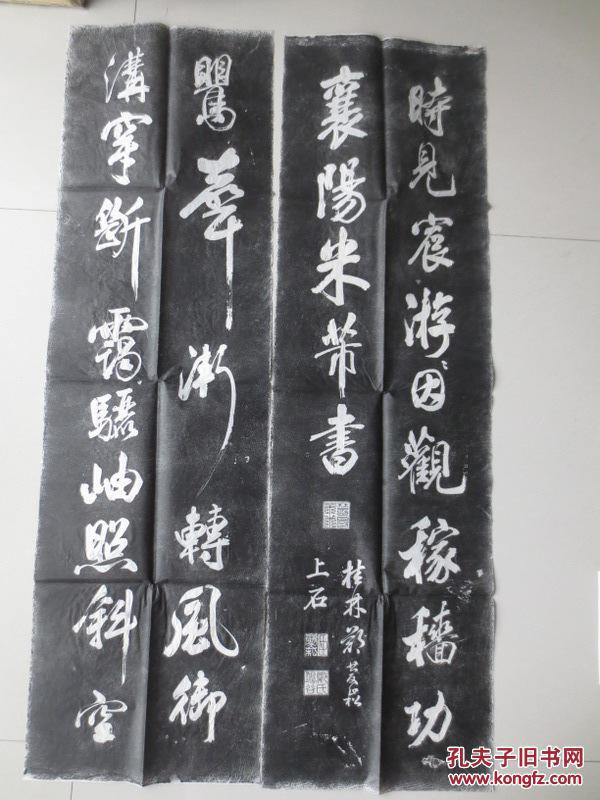 鸎華漸轉風御
溝寧斷靄驪岫照斜空
時見宸游因觀稼穡功
襄陽米芾書
桂林
上石
孔夫子旧书网
www.kongfz.com